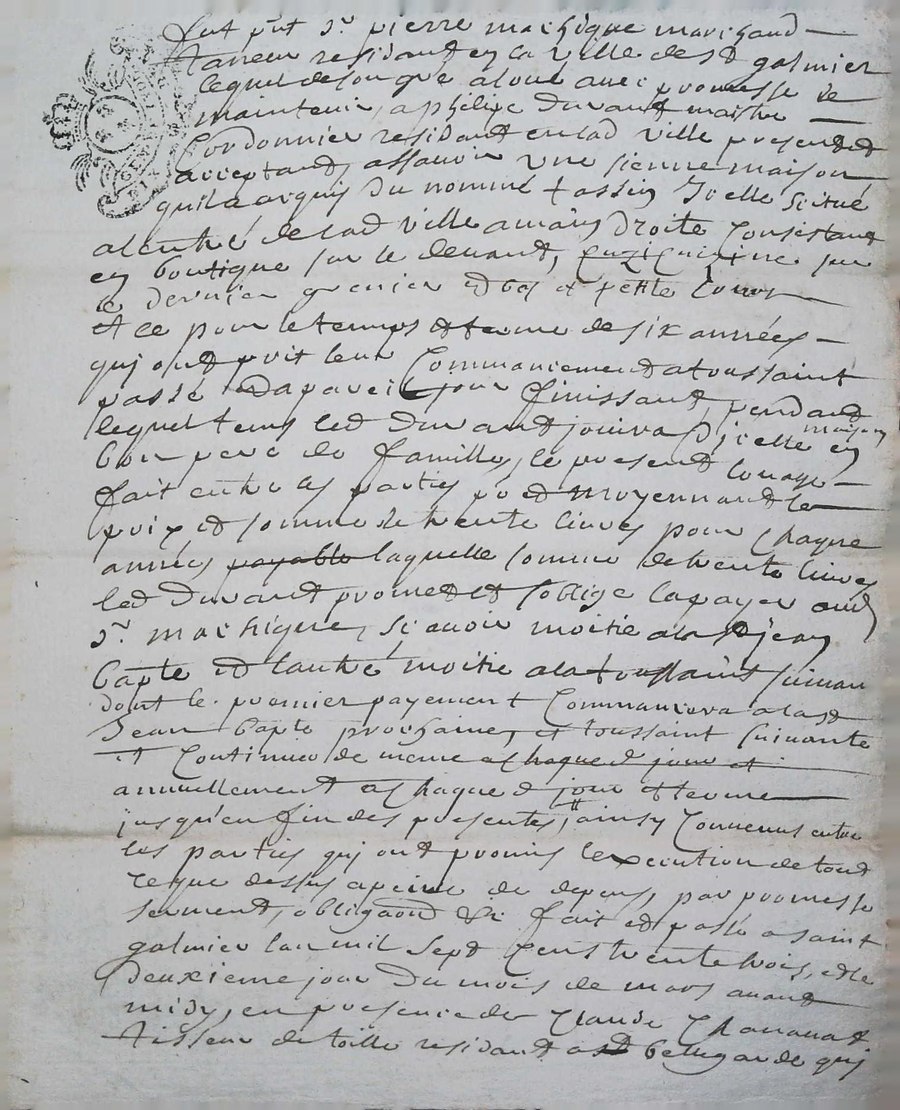 fut pnt Sr pierre machique marchand
taneur residant en la ville de st galmier
lequel de son gré a loué avec promesse de
maintenir, a phelipe durand maitre
Cordonnier residant en lad ville present et
acceptand, assavoir une sienne maison
quil a acquis du nommé tassin Icelle Scitué
a lentré de lad ville a main droite Consistant
en boutique sur le devant, Cuizine sur
le dernier grenier et petite Cour
et ce pour le temps et terme de six années
qui ont prit leur Commancement a toussaint
passé et a pareil jour finissant, pendand
lequel tems led durand jouira dicelle maison en
bon pere de famille, le present louage
fait entre les parties pnt moyennand le
prix et somme de trente livres pour Chaque
années payable laquelle somme de trente livres
led durand promet et soblige la payer aud
Sr machique, Scavoir moitié a la st jean
bapte et lautre moitie a la toussaint suivan
dont le premier payement Commancera a la st
Jean bapte prochaine, et toussaint suivante
et Continuer de meme a chaque d jour et
annuellement a chaque d jour et terme
jusqu'en fin des presentes, ainsy Convenus entre
les parties qui ont promis lexecution de tout
ce que dessus a peine de depens, par promesse
serment, obligaon &c fait et passé a saint
galmier lan mil sept Cens trente trois, et le
deuxieme jour du mois de mars avant
midy, en presence de Claude
tisseur de toille residant a st bellegarde qui